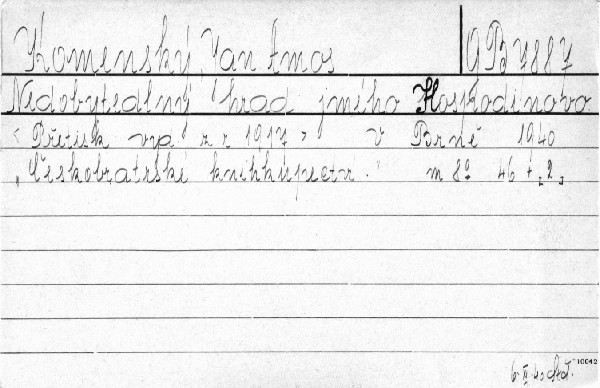 Komenský, Jan Amos QB 7887
Nedobytedlný hrad jméno Hospodinovo
< Přetisk vyd. z r. 1917 > v Brně 1940
"Českobratrské knihkupectví." m 8° 46 + [2]
10042